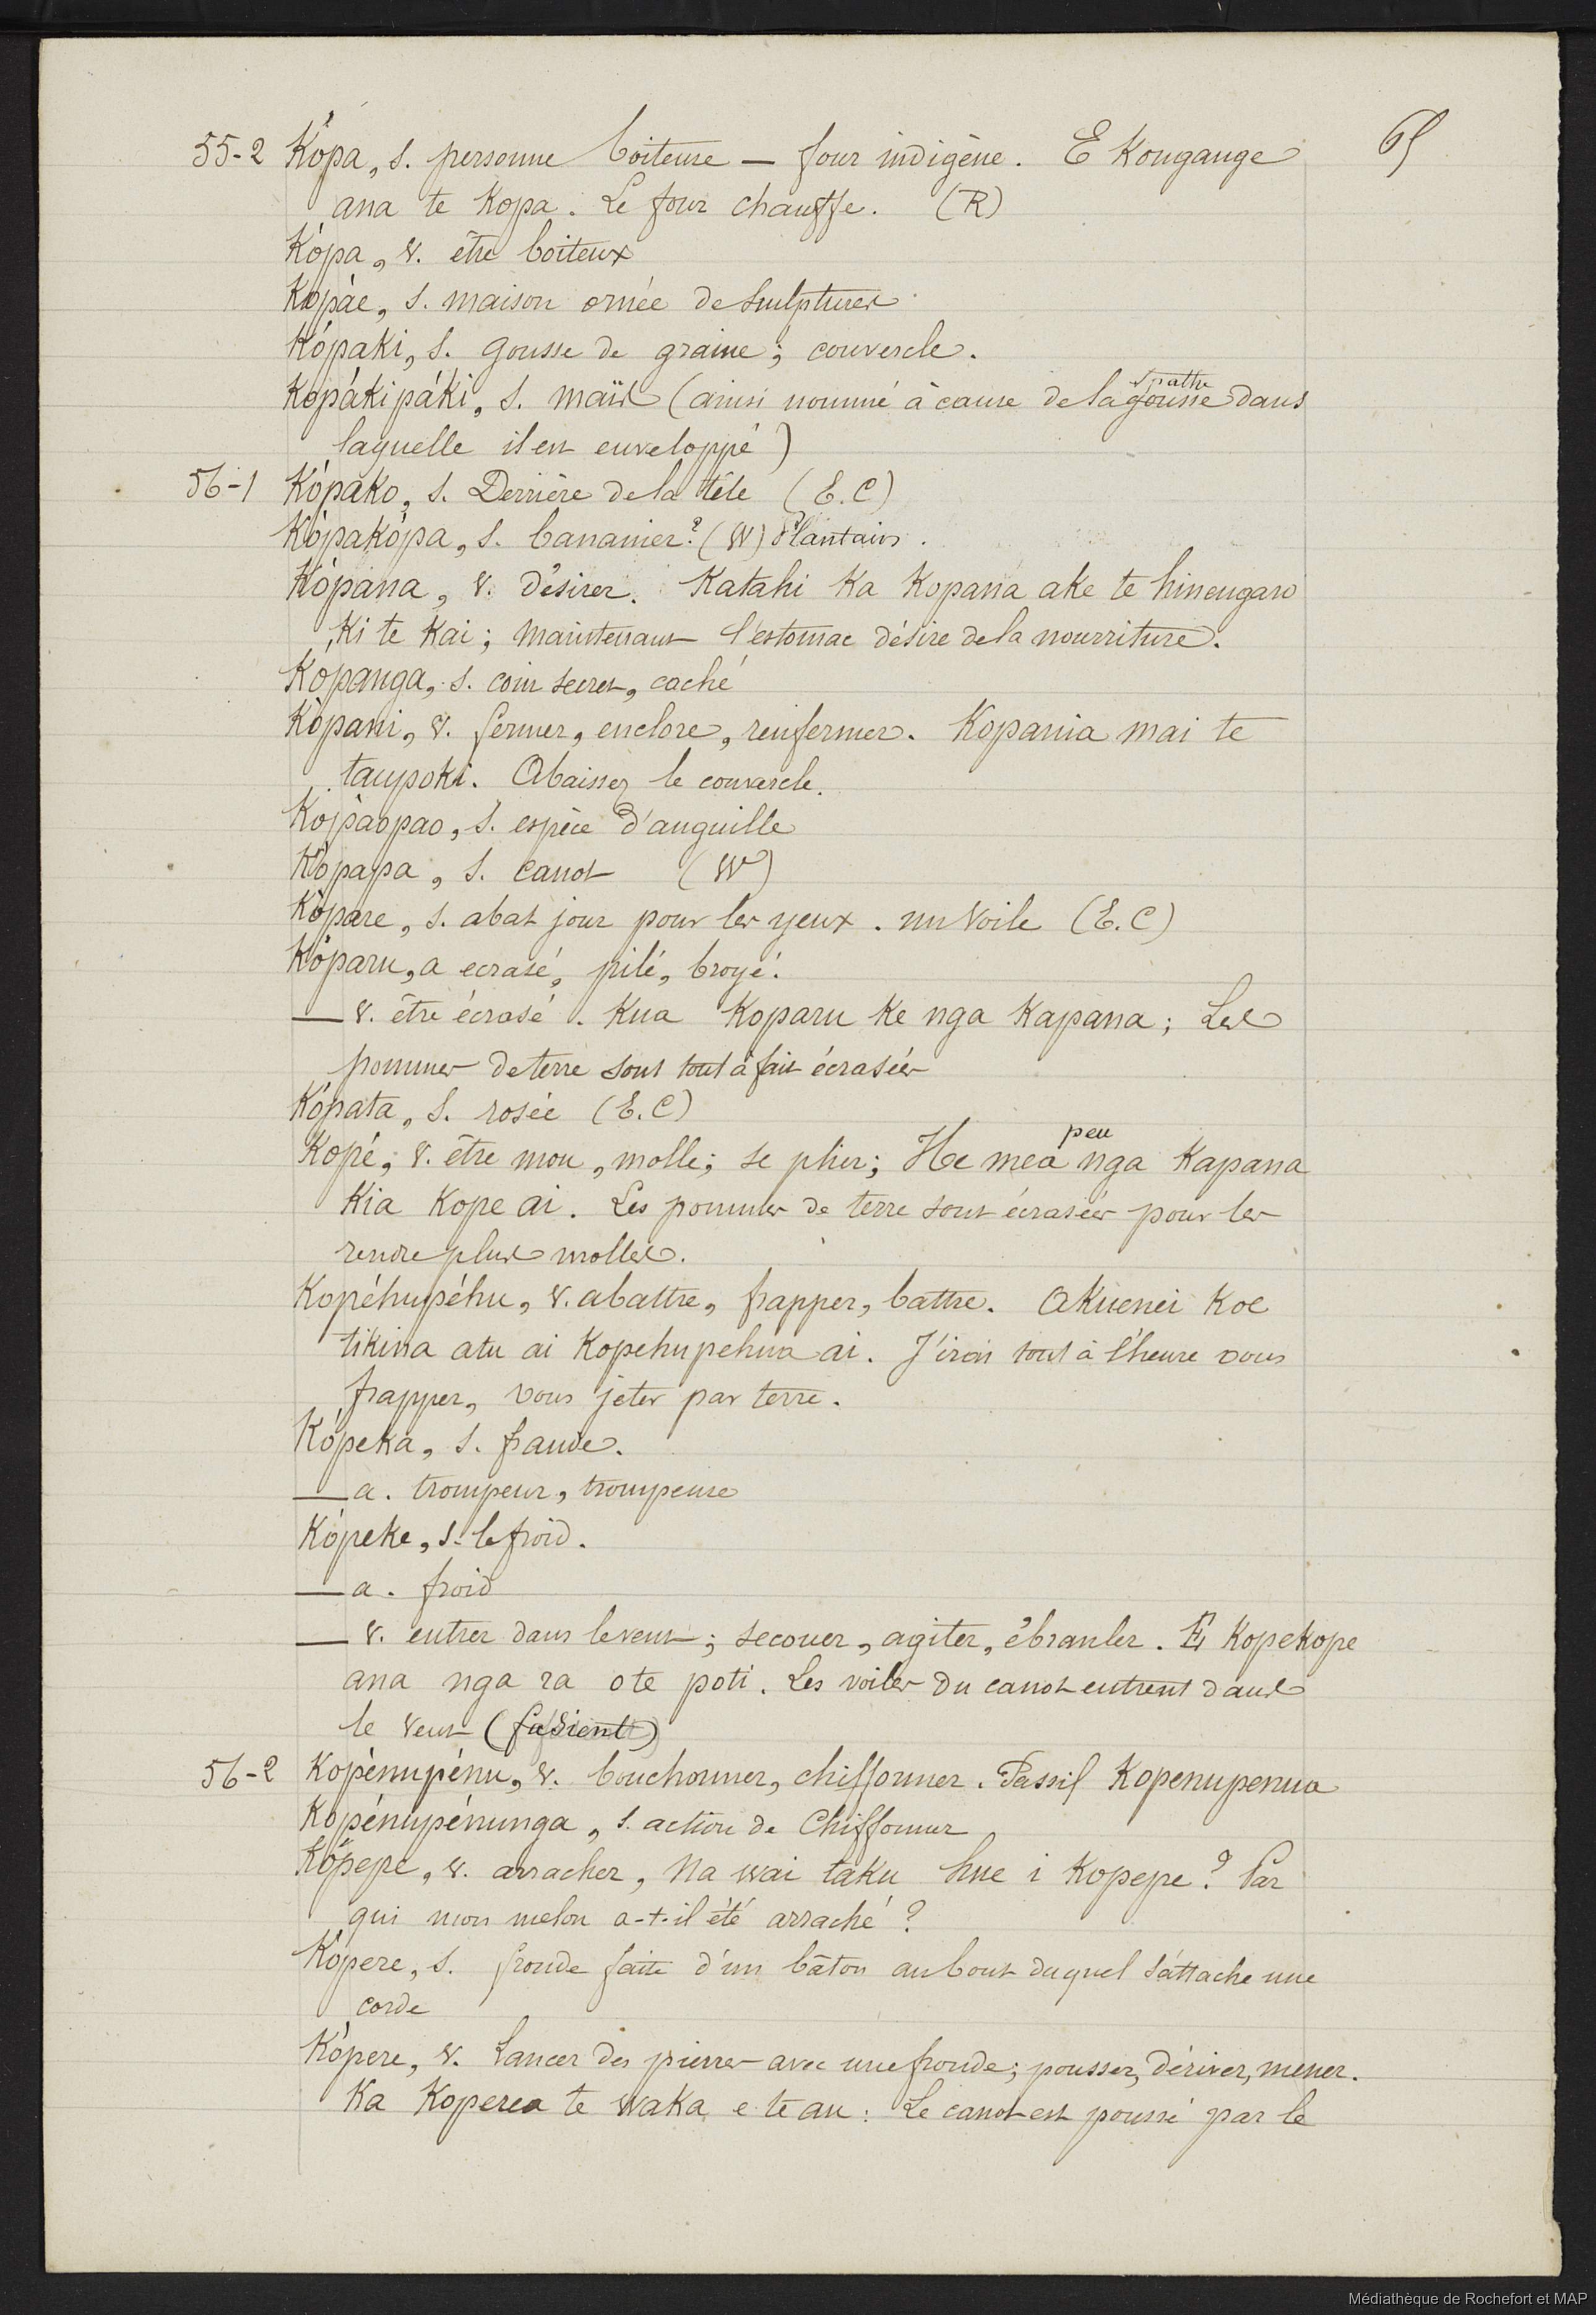 65
55-2 Kópa, s. personne boiteuse — four indigène. E Kongange
ana te Kopa. Le four chauffe. (R)
Kópa, v. être boiteux
Kopáe, s. maison ornée de sculptures
Kópaki, s. gousse de graine; couvercle.
Kopákipáki, s. maïs (ainsi nommé à cause de la gousse dans
spathe
laquelle il est enveloppé)
56-1 Kópako, s. Derrière de la tête (E.C)
Kópakópa, s. bananier? (W) Plantain.
Kópana, v. désirer. Katahi Ka Kopana ake te hinengaro
Ki te Kai; maintenant l'estomac désire de la nourriture.
Kopanga, s. coin secret, caché
Kópani, v. fermer, enclore, renfermer. Kopania mai te
taupoki. Abaissez le couvercle.
Kopáopao, s. espèce d'anguille
Kópapa, s. canot (W)
Kópare, s. abat jour pour les yeux. un voile (E.C)
Kóparu, a ecrasé, pilé, broyé.
— v. être écrasé. Kua Koparu Ke nga Kapana; Les
pommes de terre sont tout à fait écrasées
Kópata, s. rosée (E.C)
Kopé, v. être mou, molle; se plier; He mea peu nga Kapana
Kia Kope ai. Les pommes de terre sont écrasées pour les
rendre plus molles.
Kopéhupéhu, v. abattre, frapper, battre. Akuenei Koe
tikina atu ai Kopehupehua ai. J'irai tout à l'heure vous
frapper, vous jeter par terre.
Kópeka, s. fraude.
— a. trompeur, trompeuse
Kópeke, s. le froid.
— a. froid
— v. entrer dans le vent; secouer, agiter, ébranler. E Kopekope
ana nga ra o te poti. Les voiles du canot entrent dans
le vent (fasient)
56-2 Kopénupénu, v. bouchonner, chiffonner. Passif Kopenupenua
Kopénupénunga, s. action de Chiffonner
Kópepe, v. arracher, Na wai taku hue i Kopepe? Par
qui mon melon a-t-il été arraché?
Kópere, s. fronde faite d'un bâton au bout duquel s'attache une
corde
Kópere, v. Lancer des pierres avec une fronde; pousser, dériver, mener.
Ka Koperea te waka e te au: Le canot est poussé par le
Médiathèque de Rochefort et MAP